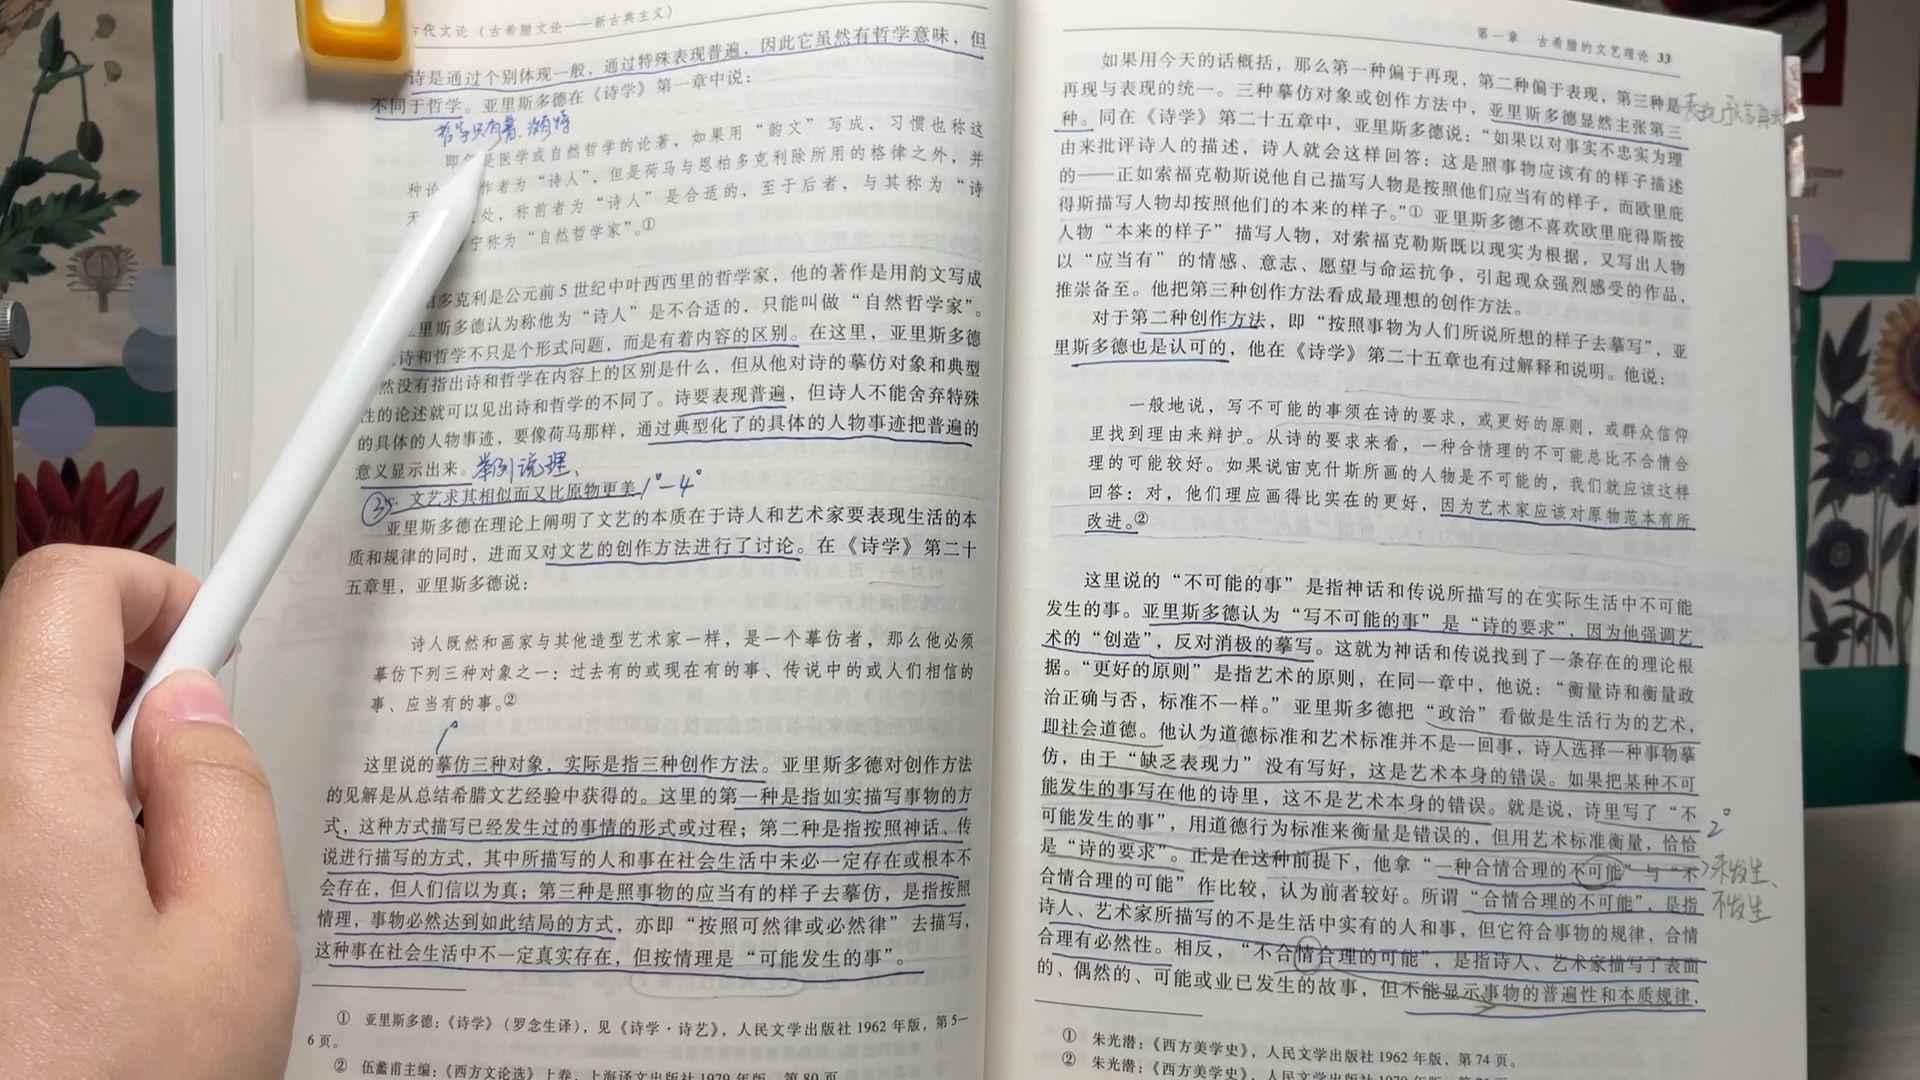 古代文论（古希腊文论——新古典主义）
诗是通过个别体现一般，通过特殊表现普遍，因此它虽然有哲学意味，但
不同于哲学。亚里斯多德在《诗学》第一章中说：
哲学只有普、没有特
即 是医学或自然哲学的论著，如果用“韵文”写成，习惯也称这
种论 作者为“诗人”，但是荷马与恩柏多克利除所用的格律之外，并
无 处，称前者为“诗人”是合适的，至于后者，与其称为“诗
宁称为“自然哲学家”。①
柏多克利是公元前5世纪中叶西西里的哲学家，他的著作是用韵文写成
里斯多德认为称他为“诗人”是不合适的，只能叫做“自然哲学家”。
诗和哲学不只是个形式问题，而是有着内容的区别。在这里，亚里斯多德
然没有指出诗和哲学在内容上的区别是什么，但从他对诗的摹仿对象和典型
性的论述就可以见出诗和哲学的不同了。诗要表现普遍，但诗人不能舍弃特殊
的具体的人物事迹，要像荷马那样，通过典型化了的具体的人物事迹把普遍的
意义显示出来。举例说理、
③ 文艺求其相似而又比原物更美 1°-4°
亚里斯多德在理论上阐明了文艺的本质在于诗人和艺术家要表现生活的本
质和规律的同时，进而又对文艺的创作方法进行了讨论。在《诗学》第二十
五章里，亚里斯多德说：
诗人既然和画家与其他造型艺术家一样，是一个摹仿者，那么他必须
摹仿下列三种对象之一：过去有的或现在有的事、传说中的或人们相信的
事、应当有的事。②
1°
这里说的摹仿三种对象，实际是指三种创作方法。亚里斯多德对创作方法
的见解是从总结希腊文艺经验中获得的。这里的第一种是指如实描写事物的方
式，这种方式描写已经发生过的事情的形式或过程；第二种是指按照神话、传
说进行描写的方式，其中所描写的人和事在社会生活中未必一定存在或根本不
会存在，但人们信以为真；第三种是照事物的应当有的样子去摹仿，是指按照
情理，事物必然达到如此结局的方式，亦即“按照可然律或必然律”去描写，
这种事在社会生活中不一定真实存在，但按情理是“可能发生的事”。
① 亚里斯多德：《诗学》（罗念生译），见《诗学·诗艺》，人民文学出版社1962年版，第5—
6页。
② 伍蠡甫主编：《西方文论选》上卷，上海译文出版社1979年版，第80页
第一章 古希腊的文艺理论 33
如果用今天的话概括，那么第一种偏于再现，第二种偏于表现，第三种是
再现与表现的统一。三种摹仿对象或创作方法中，亚里斯多德显然主张第三
种。同在《诗学》第二十五章中，亚里斯多德说：“如果以对事实不忠实为理
由来批评诗人的描述，诗人就会这样回答：这是照事物应该有的样子描述
的——正如索福克勒斯说他自己描写人物是按照他们应当有的样子，而欧里庇
得斯描写人物却按照他们的本来的样子。”① 亚里斯多德不喜欢欧里庇得斯按
人物“本来的样子”描写人物，对索福克勒斯既以现实为根据，又写出人物
以“应当有”的情感、意志、愿望与命运抗争，引起观众强烈感受的作品，
推崇备至。他把第三种创作方法看成最理想的创作方法。
对于第二种创作方法，即“按照事物为人们所说所想的样子去摹写”，亚
里斯多德也是认可的，他在《诗学》第二十五章也有过解释和说明。他说：
一般地说，写不可能的事须在诗的要求，或更好的原则，或群众信仰
里找到理由来辩护。从诗的要求来看，一种合情理的不可能总比不合情合
理的可能较好。如果说宙克什斯所画的人物是不可能的，我们就应该这样
回答：对，他们理应画得比实在的更好，因为艺术家应该对原物范本有所
改进。②
这里说的“不可能的事”是指神话和传说所描写的在实际生活中不可能
发生的事。亚里斯多德认为“写不可能的事”是“诗的要求”，因为他强调艺
术的“创造”，反对消极的摹写。这就为神话和传说找到了一条存在的理论根
据。“更好的原则”是指艺术的原则，在同一章中，他说：“衡量诗和衡量政
治正确与否，标准不一样。”亚里斯多德把“政治”看做是生活行为的艺术，
即社会道德。他认为道德标准和艺术标准并不是一回事，诗人选择一种事物摹
仿，由于“缺乏表现力”没有写好，这是艺术本身的错误。如果把某种不可
能发生的事写在他的诗里，这不是艺术本身的错误。就是说，诗里写了“不
可能发生的事”，用道德行为标准来衡量是错误的，但用艺术标准衡量，恰恰 2°
是“诗的要求”。正是在这种前提下，他拿“一种合情合理的不可能”与“不 未发生、
合情合理的可能”作比较，认为前者较好。所谓“合情合理的不可能”，是指 不发生
诗人、艺术家所描写的不是生活中实有的人和事，但它符合事物的规律，合情
合理有必然性。相反，“不合情合理的可能”，是指诗人、艺术家描写了表面
的、偶然的、可能或业已发生的故事，但不能显示事物的普遍性和本质规律，
① 朱光潜：《西方美学史》，人民文学出版社1962年版，第74页。
② 朱光潜：《西方美学史》，人民文学出版社